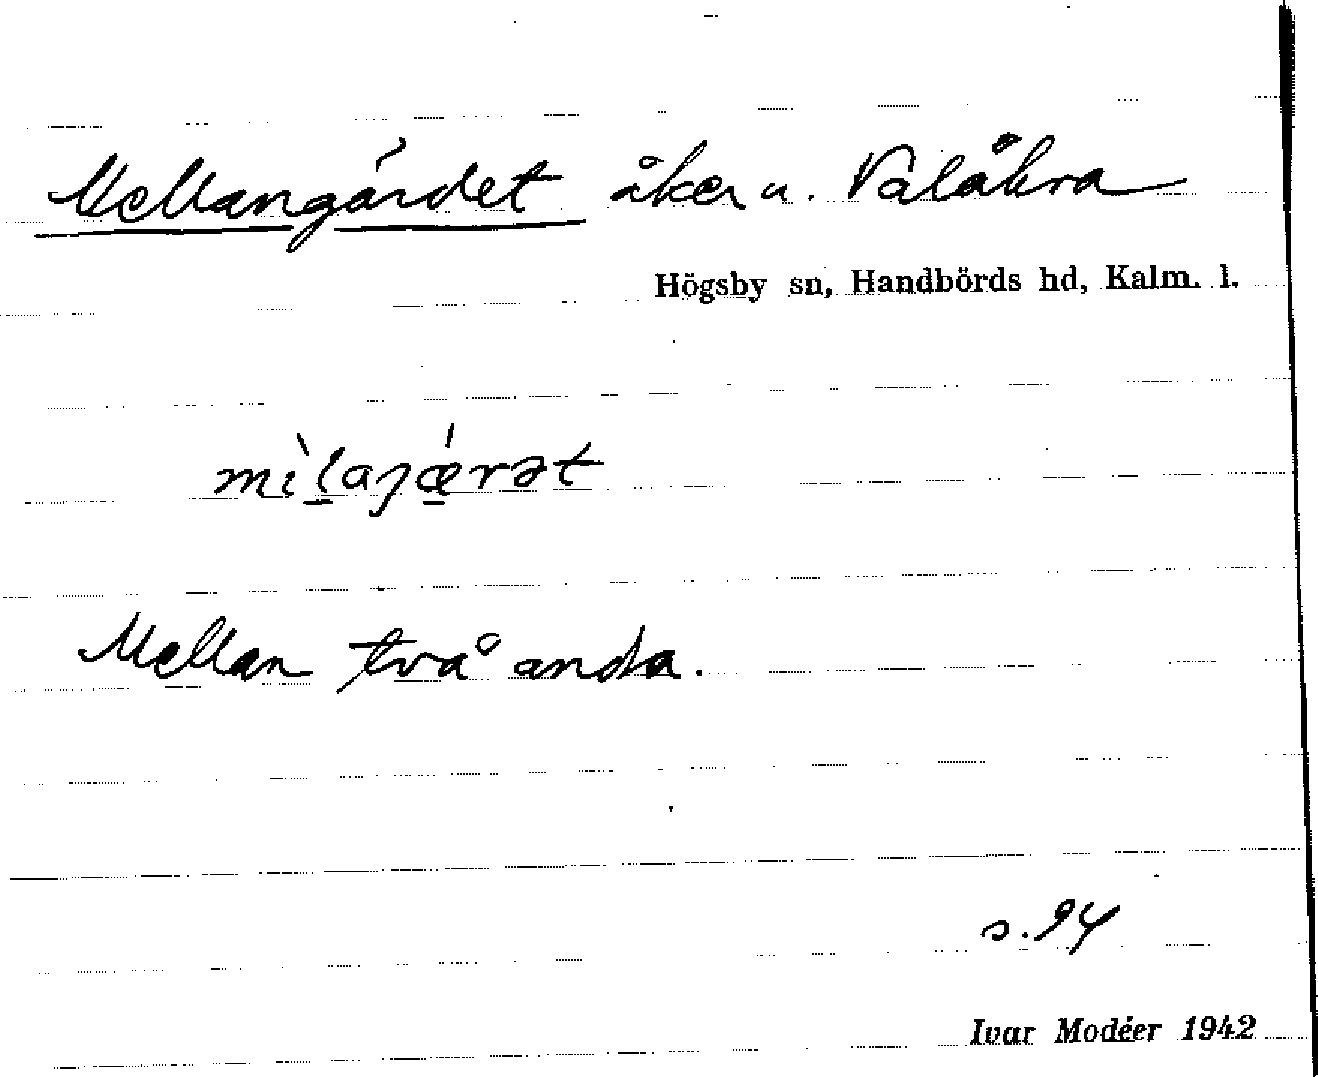 Mellangärdet åker u. Valåkra
Högsby sn, Handbörds hd, Kalm. l.
Mellan två andra.
s. 94
Ivar Modéer 1942